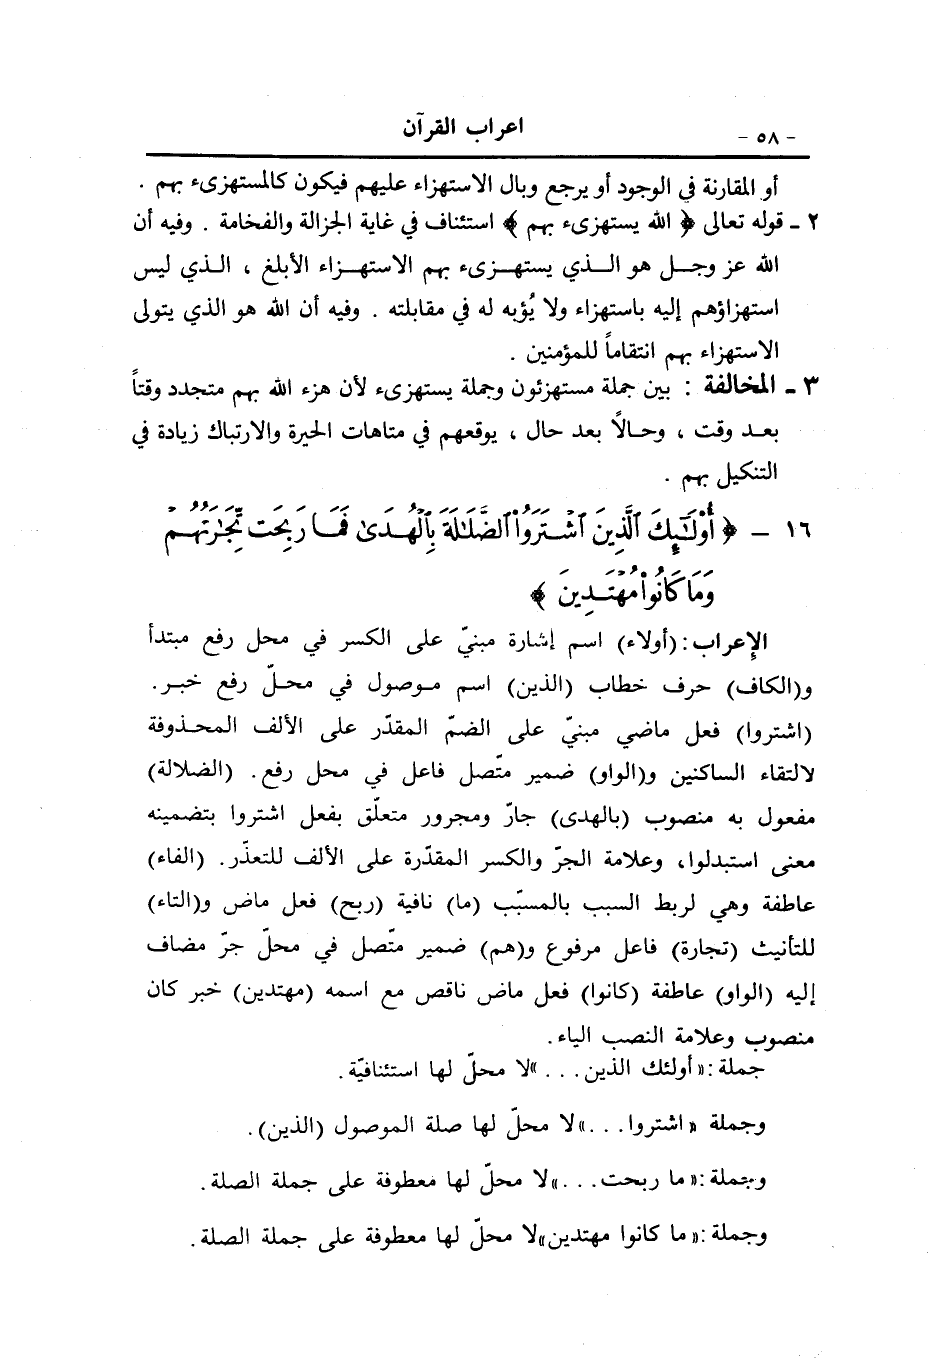 اعراب القرآن
- ٥٨ -
أو المقارنة في الوجود أو يرجع وبال الاستهزاء عليهم فيكون كالمستهزىء بهم .
٢ ـ قوله تعالى ﴿ الله يستهزىء بهم ﴾ استئناف في غاية الجزالة والفخامة . وفيه أن
الله عز وجل هو الذي يستهزىء بهم الاستهزاء الأبلغ ، الذي ليس
استهزاؤهم إليه باستهزاء ولا يُؤبه له في مقابلته . وفيه أن الله هو الذي يتولى
الاستهزاء بهم انتقاماً للمؤمنين .
٣ ـ المخالفة : بين جملة مستهزئون وجملة يستهزىء لأن هزء الله بهم متجدد وقتاً
بعد وقت ، وحالاً بعد حال ، يوقعهم في متاهات الحيرة والارتباك زيادة في
التنكيل بهم .
١٦ - ﴿ أُوْلَٰٓئِكَ ٱلَّذِينَ ٱشْتَرَوُاْ ٱلضَّلَٰلَةَ بِٱلْهُدَىٰ فَمَا رَبِحَت تِّجَٰرَتُهُمْ
وَمَا كَانُواْ مُهْتَدِينَ ﴾
الإعراب: (أولاء) اسم إشارة مبنيّ على الكسر في محل رفع مبتدأ
و(الكاف) حرف خطاب (الذين) اسم موصول في محلّ رفع خبر.
(اشتروا) فعل ماضي مبنيّ على الضمّ المقدّر على الألف المحذوفة
لالتقاء الساكنين و(الواو) ضمير متّصل فاعل في محل رفع. (الضلالة)
مفعول به منصوب (بالهدى) جارّ ومجرور متعلّق بفعل اشتروا بتضمينه
معنى استبدلوا، وعلامة الجرّ والكسر المقدّرة على الألف للتعذّر. (الفاء)
عاطفة وهي لربط السبب بالمسبّب (ما) نافية (ربح) فعل ماض و(التاء)
للتأنيث (تجارة) فاعل مرفوع و(هم) ضمير متّصل في محلّ جرّ مضاف
إليه (الواو) عاطفة (كانوا) فعل ماض ناقص مع اسمه (مهتدين) خبر كان
منصوب وعلامة النصب الياء.
جملة: «أولئك الذين. . . » لا محلّ لها استئنافيّة.
وجملة «اشتروا. . .» لا محلّ لها صلة الموصول (الذين).
وجملة: «ما ربحت. . .» لا محلّ لها معطوفة على جملة الصلة.
وجملة: «ما كانوا مهتدين» لا محلّ لها معطوفة على جملة الصلة.